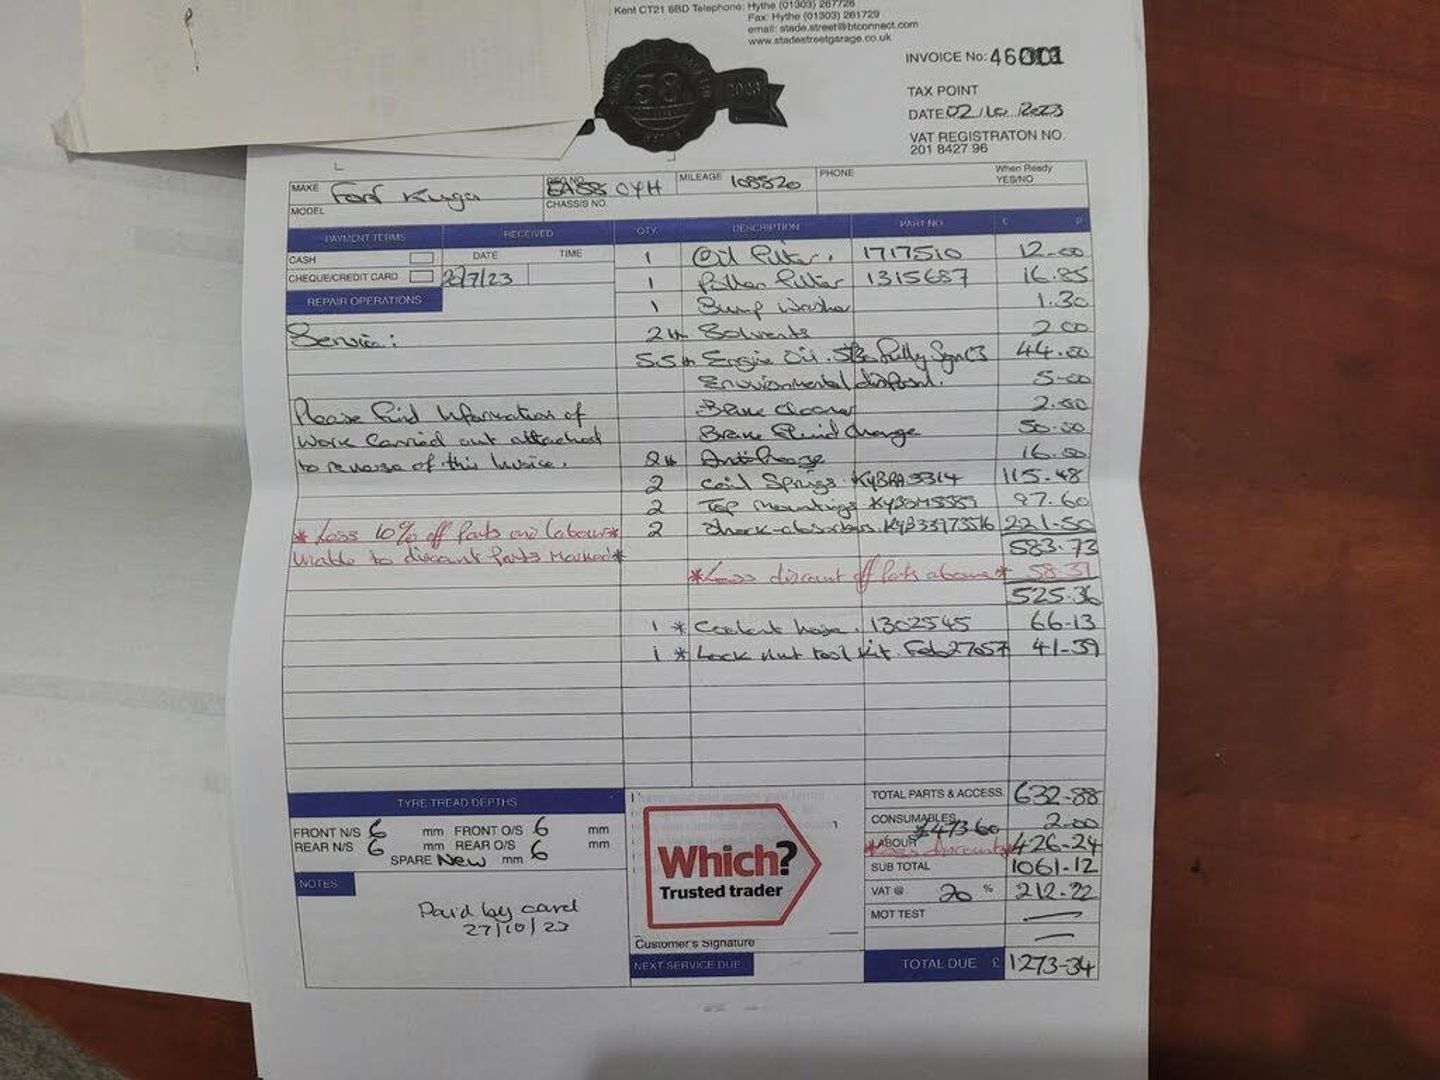 Kent CT21 6BD Telephone: Hythe (01303) 267726
Fax: Hythe (01303) 261729
email: stade.street@btconnect.com
www.stadestreetgarage.co.uk
58
INVOICE No: 46
TAX POINT
DATE 02 2023
VAT REGISTRATON NO.
201 8427 96
MAKE Ford Kuga
MODEL
REG NO. CYH
CHASSIS NO.
MILEAGE 108820
PHONE
When Ready
YES/NO
PAYMENT TERMS RECEIVED QTY DESCRIPTION PART NO. £ P
CASH DATE TIME
1 Oil Filter. 1717510 12.00
CHEQUE/CREDIT CARD /7/23
1 Pollen Filter 1315687 16.85
REPAIR OPERATIONS
1 Sump Washer 1.30
Service: 2 Solvents 2.00
5.5 Engine Oil. Fully Syn 44.00
Environmental disposal. 5-00
Please find Information of Brake Cleaner 2.00
Work Carried out attached Brake Fluid change 50.00
to reverse of this Invoice. 2 Antifreeze 16.00
2 Coil Springs. 115.48
2 Top Mountings 97.60
*Less 10% off Parts and labour* 2 Shock-absorbers. 221-50
Unable to discount Parts Marked* 583.73
*Less discount off Parts above* 58.37
525.36
1 * Coolant hose. 1302545 66-13
1 * Lock nut tool kit. Feb27657 41-39
TYRE TREAD DEPTHS
FRONT N/S 6 mm FRONT O/S 6 mm
REAR N/S 6 mm REAR O/S 6 mm
SPARE New mm
NOTES
Paid by card
27/10/23
Which?
Trusted trader
Customer's Signature
NEXT SERVICE DUE
TOTAL PARTS & ACCESS. 632-88
CONSUMABLES 2.00
£473.60
LABOUR *Less discount* 426-24
SUB TOTAL 1061-12
VAT @ 20 % 212-22
MOT TEST —
—
TOTAL DUE £ 1273-34